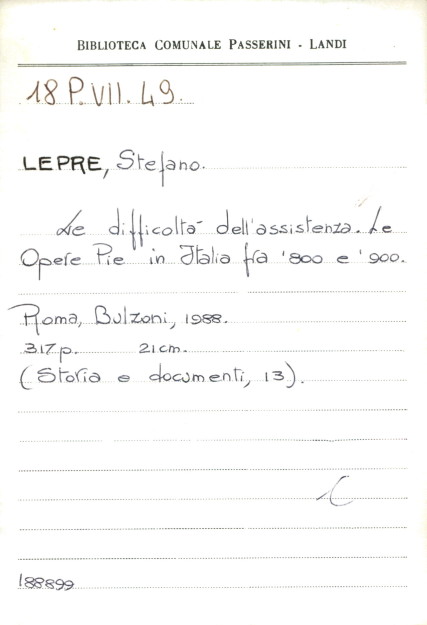 BIBLIOTECA COMUNALE PASSERINI - LANDI
18 P. VII. 49.
LEPRE, Stefano.
Le difficoltà dell'assistenza. Le
Opere Pie in Italia fra '800 e '900.
Roma, Bulzoni, 1988.
317 p. 21 cm.
(Storia e documenti, 13).
188899